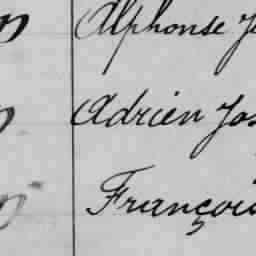 Alphonse
Adrien Jos
François